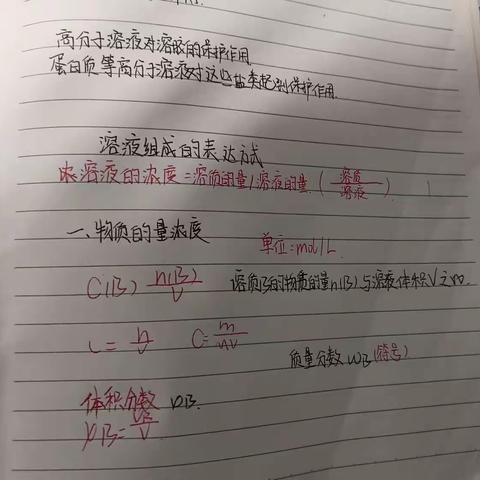 高分子溶液对溶胶的保护作用
蛋白质等高分子溶液对这些盐类起到保护作用.
溶液组成的表达方式
溶液的浓度=溶质的量/溶液的量.(溶质/溶液)
一、物质的量浓度
单位=mol/L
C(B) n(B)/V 溶质B的物质的量n(B)与溶液体积V之比.
C=n/V C=m/MV
质量分数 ωB(符号)
体积分数 φB.
φB=VB/V